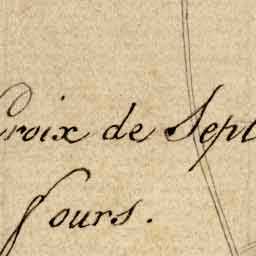 Croix de Sept
Jours.